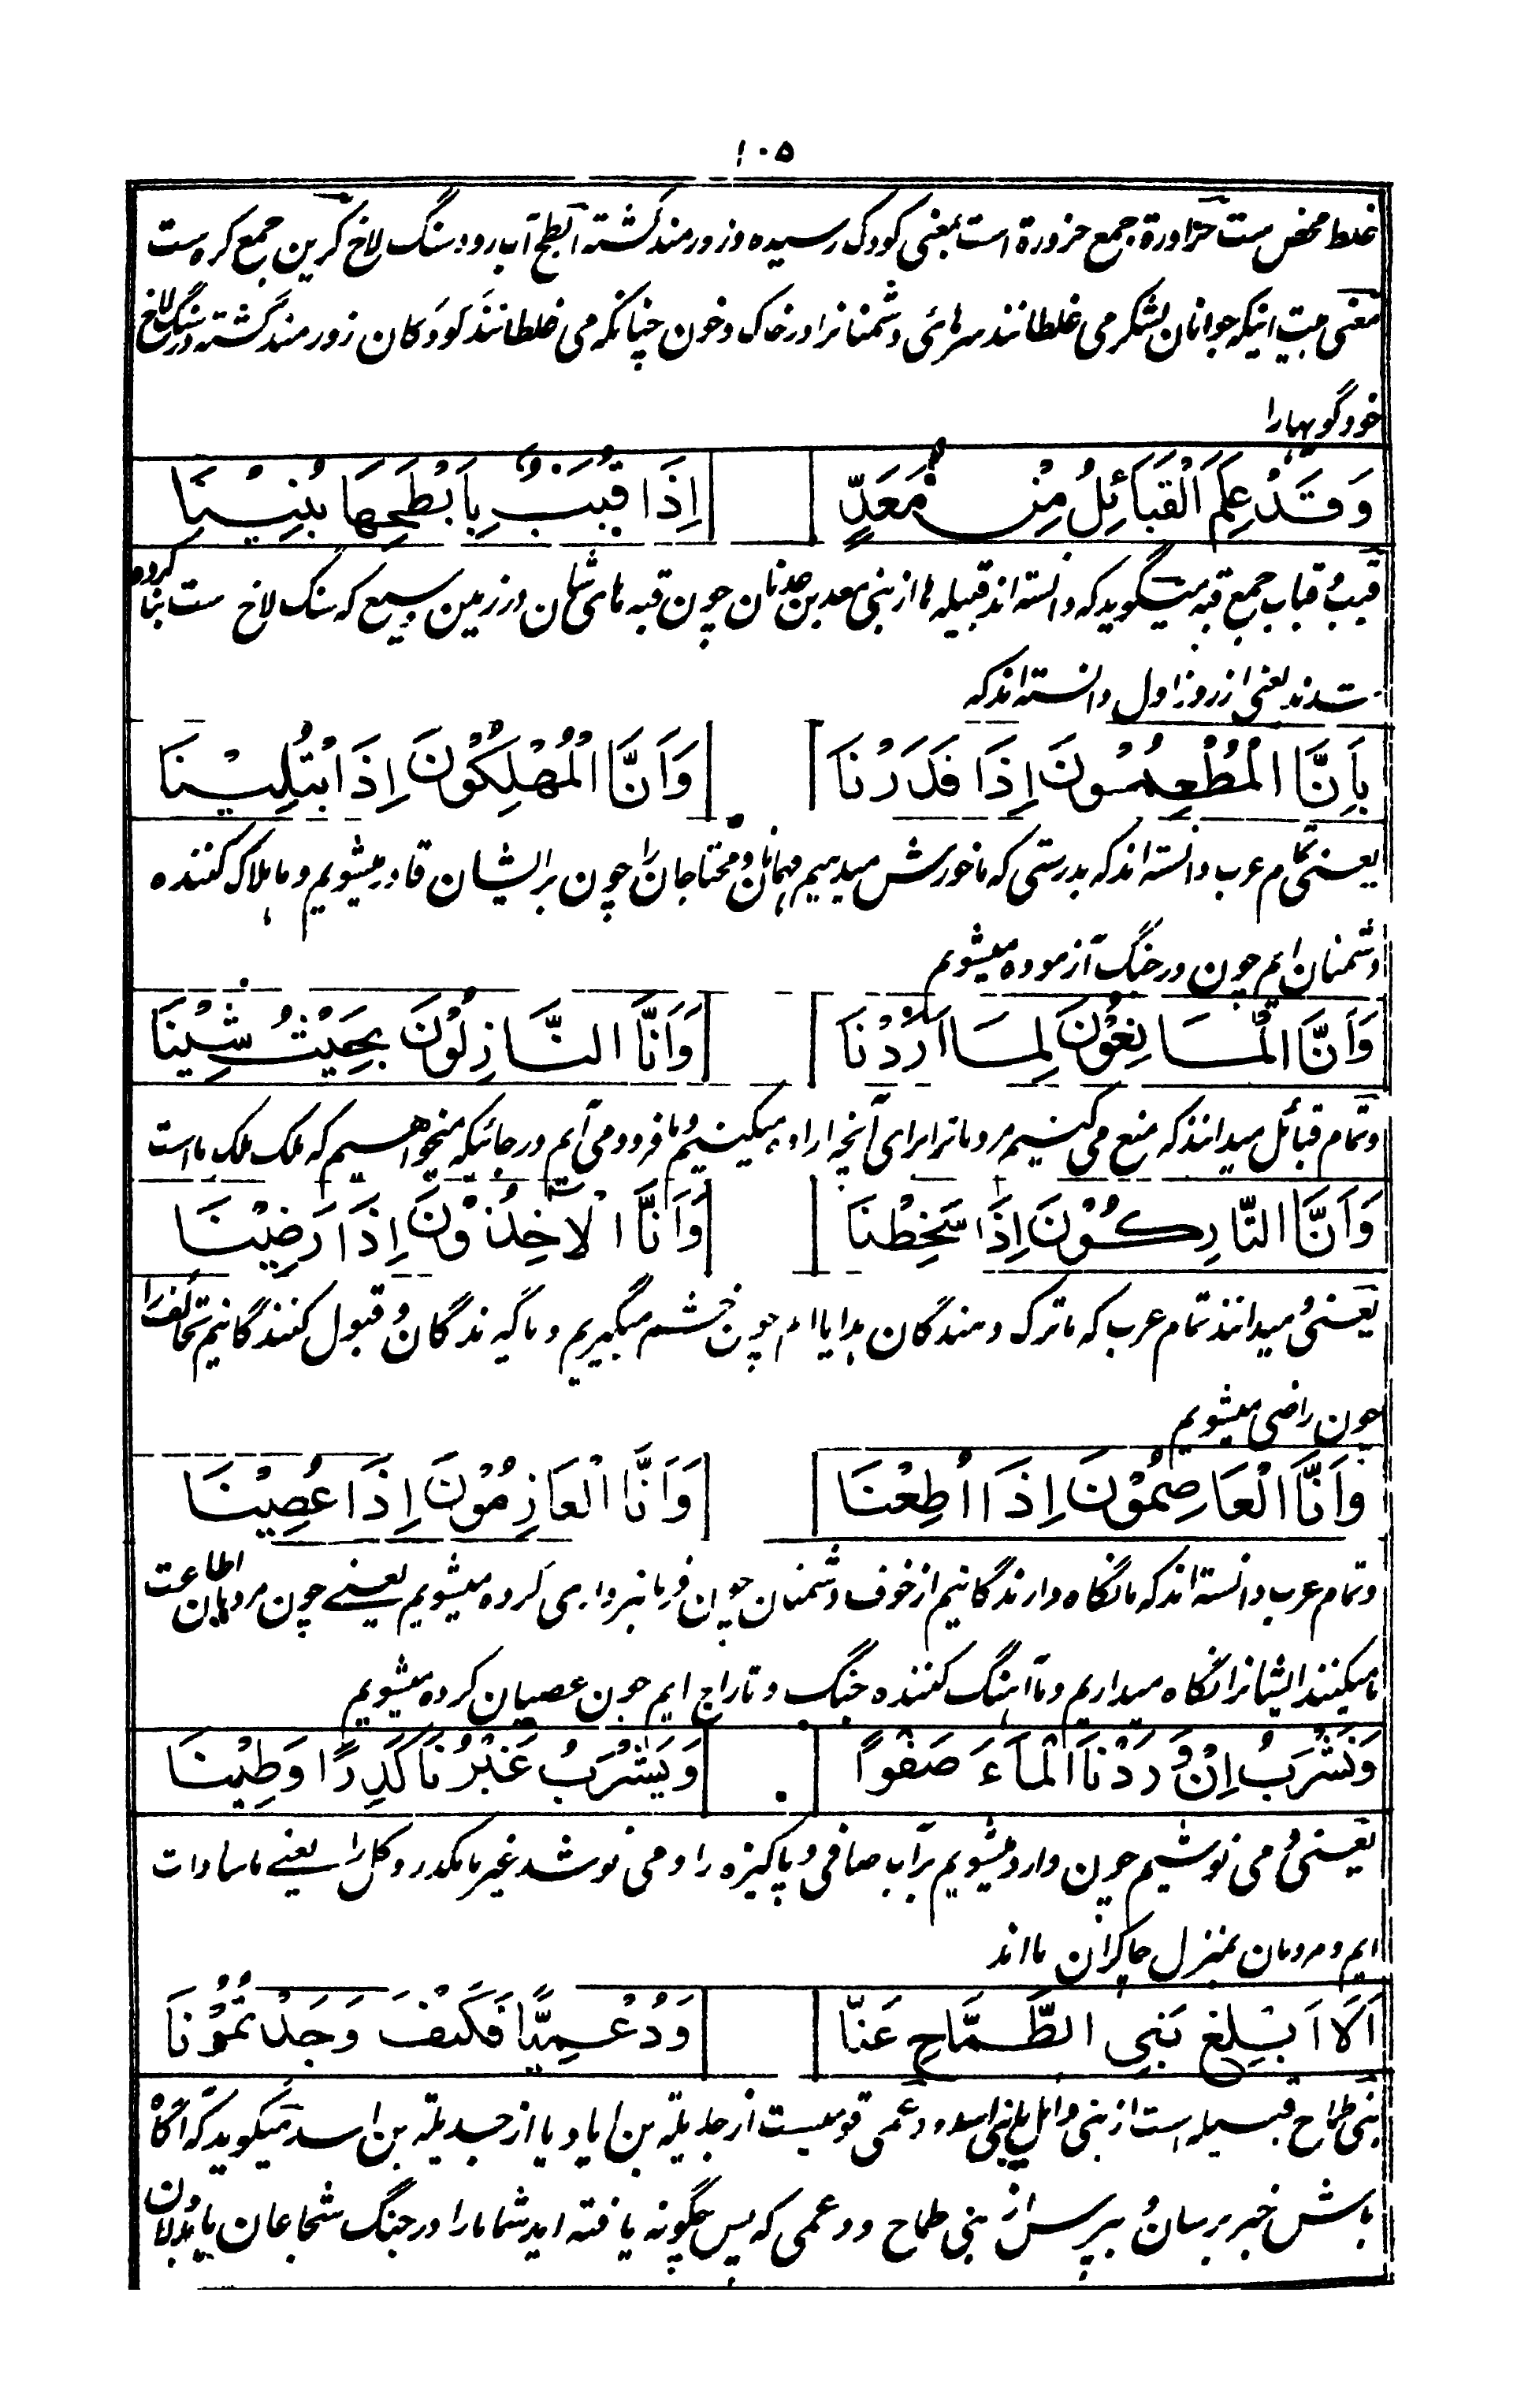 ۱۰۵
غلط محض ست حزاورة جمع حزورة است بمعنی کودک رسیده و زورمند گشته ابطح آب رود سنگ لاخ کرین جمع کره ست
معنی بیت اینکه جوانان لشکر می غلطانند سرهائی دشمنانرا در خاک و خون چنانکه می غلطانند کودکان زورمند گشته در سنگ لاخ
خود گویهارا
وَقَدْ عَلِمَ الْقَبَائِلُ مِنْ مَعَدٍّ اِذَا قُبَبٌ بِاَبْطَحِهَا بُنِيْنَا
قبب و قباب جمع قبه میگوید که دانسته اند قبیله ها از بنی معد بن عدنان چون قبه های شان در زمین وسیع که سنگ لاخ ست بنا کرده
شدند یعنی از روز اول دانسته اند که
بِاَنَّا الْمُطْعِمُوْنَ اِذَا قَدَرْنَا وَاَنَّا الْمُهْلِكُوْنَ اِذَا ابْتُلِيْنَا
یعنی تمام عرب دانسته اند که بدرستی که ما خورش میدهیم مهمانان و محتاجان را چون بر ایشان قادر میشویم و ما هلاک کننده
دشمنان ایم چون در جنگ آزموده میشویم
وَاَنَّا الْمَانِعُوْنَ لِمَا اَرَدْنَا وَاَنَّا النَّازِلُوْنَ بِحَيْثُ شِيْنَا
و تمام قبائل میدانند که منع می کنیم مردمانرا برای آنچه اراده میکنیم و ما فرود می آئیم در جائیکه میخواهیم که ملک ملک ما است
وَاَنَّا التَّارِكُوْنَ اِذَا سَخِطْنَا وَاَنَّا الْاٰخِذُوْنَ اِذَا رَضِيْنَا
یعنی و میدانند تمام عرب که ما ترک دهندگان هدایا ایم چون خشم میگیریم و ما گیرندگان و قبول کنندگانیم تحائف را
چون راضی میشویم
وَاَنَّا الْعَاصِمُوْنَ اِذَا اُطِعْنَا وَاَنَّا الْعَازِمُوْنَ اِذَا عُصِيْنَا
و تمام عرب دانسته اند که ما نگاه دارندگانیم از خوف دشمنان چون فرمانبرداری کرده میشویم یعنے چون مردمان اطاعت
ما میکنند ایشانرا نگاه میداریم و ما آهنگ کننده جنگ و تاراج ایم چون عصیان کرده میشویم
وَنَشْرَبُ اِنْ وَّرَدْنَا الْمَآءَ صَفْوًا وَيَشْرَبُ غَيْرُنَا كَدِرًا وَطِيْنَا
یعنی و می نوشیم چون وارد میشویم بر آب صافی و پاکیزه را و می نوشد غیر ما مکدر و گل را یعنے ما سادات
ایم و مردمان بمنزل چاکران ما اند
اَلَا اَبْلِغْ بَنِي الطَّمَّاحِ عَنَّا وَدُعْمِيًّا فَكَيْفَ وَجَدْتُمُوْنَا
بنی طماح قبیله است از بنی وائل یا بنی اسد و دعمی قومیست از جدیلة بن ایاد یا از جدیلة بن اسد میگوید که آگاه
باش خبر برسان و بپرس از بنی طماح و دعمی که پس چگونه یافته اید شما مارا در جنگ شجاعان یا بددلان